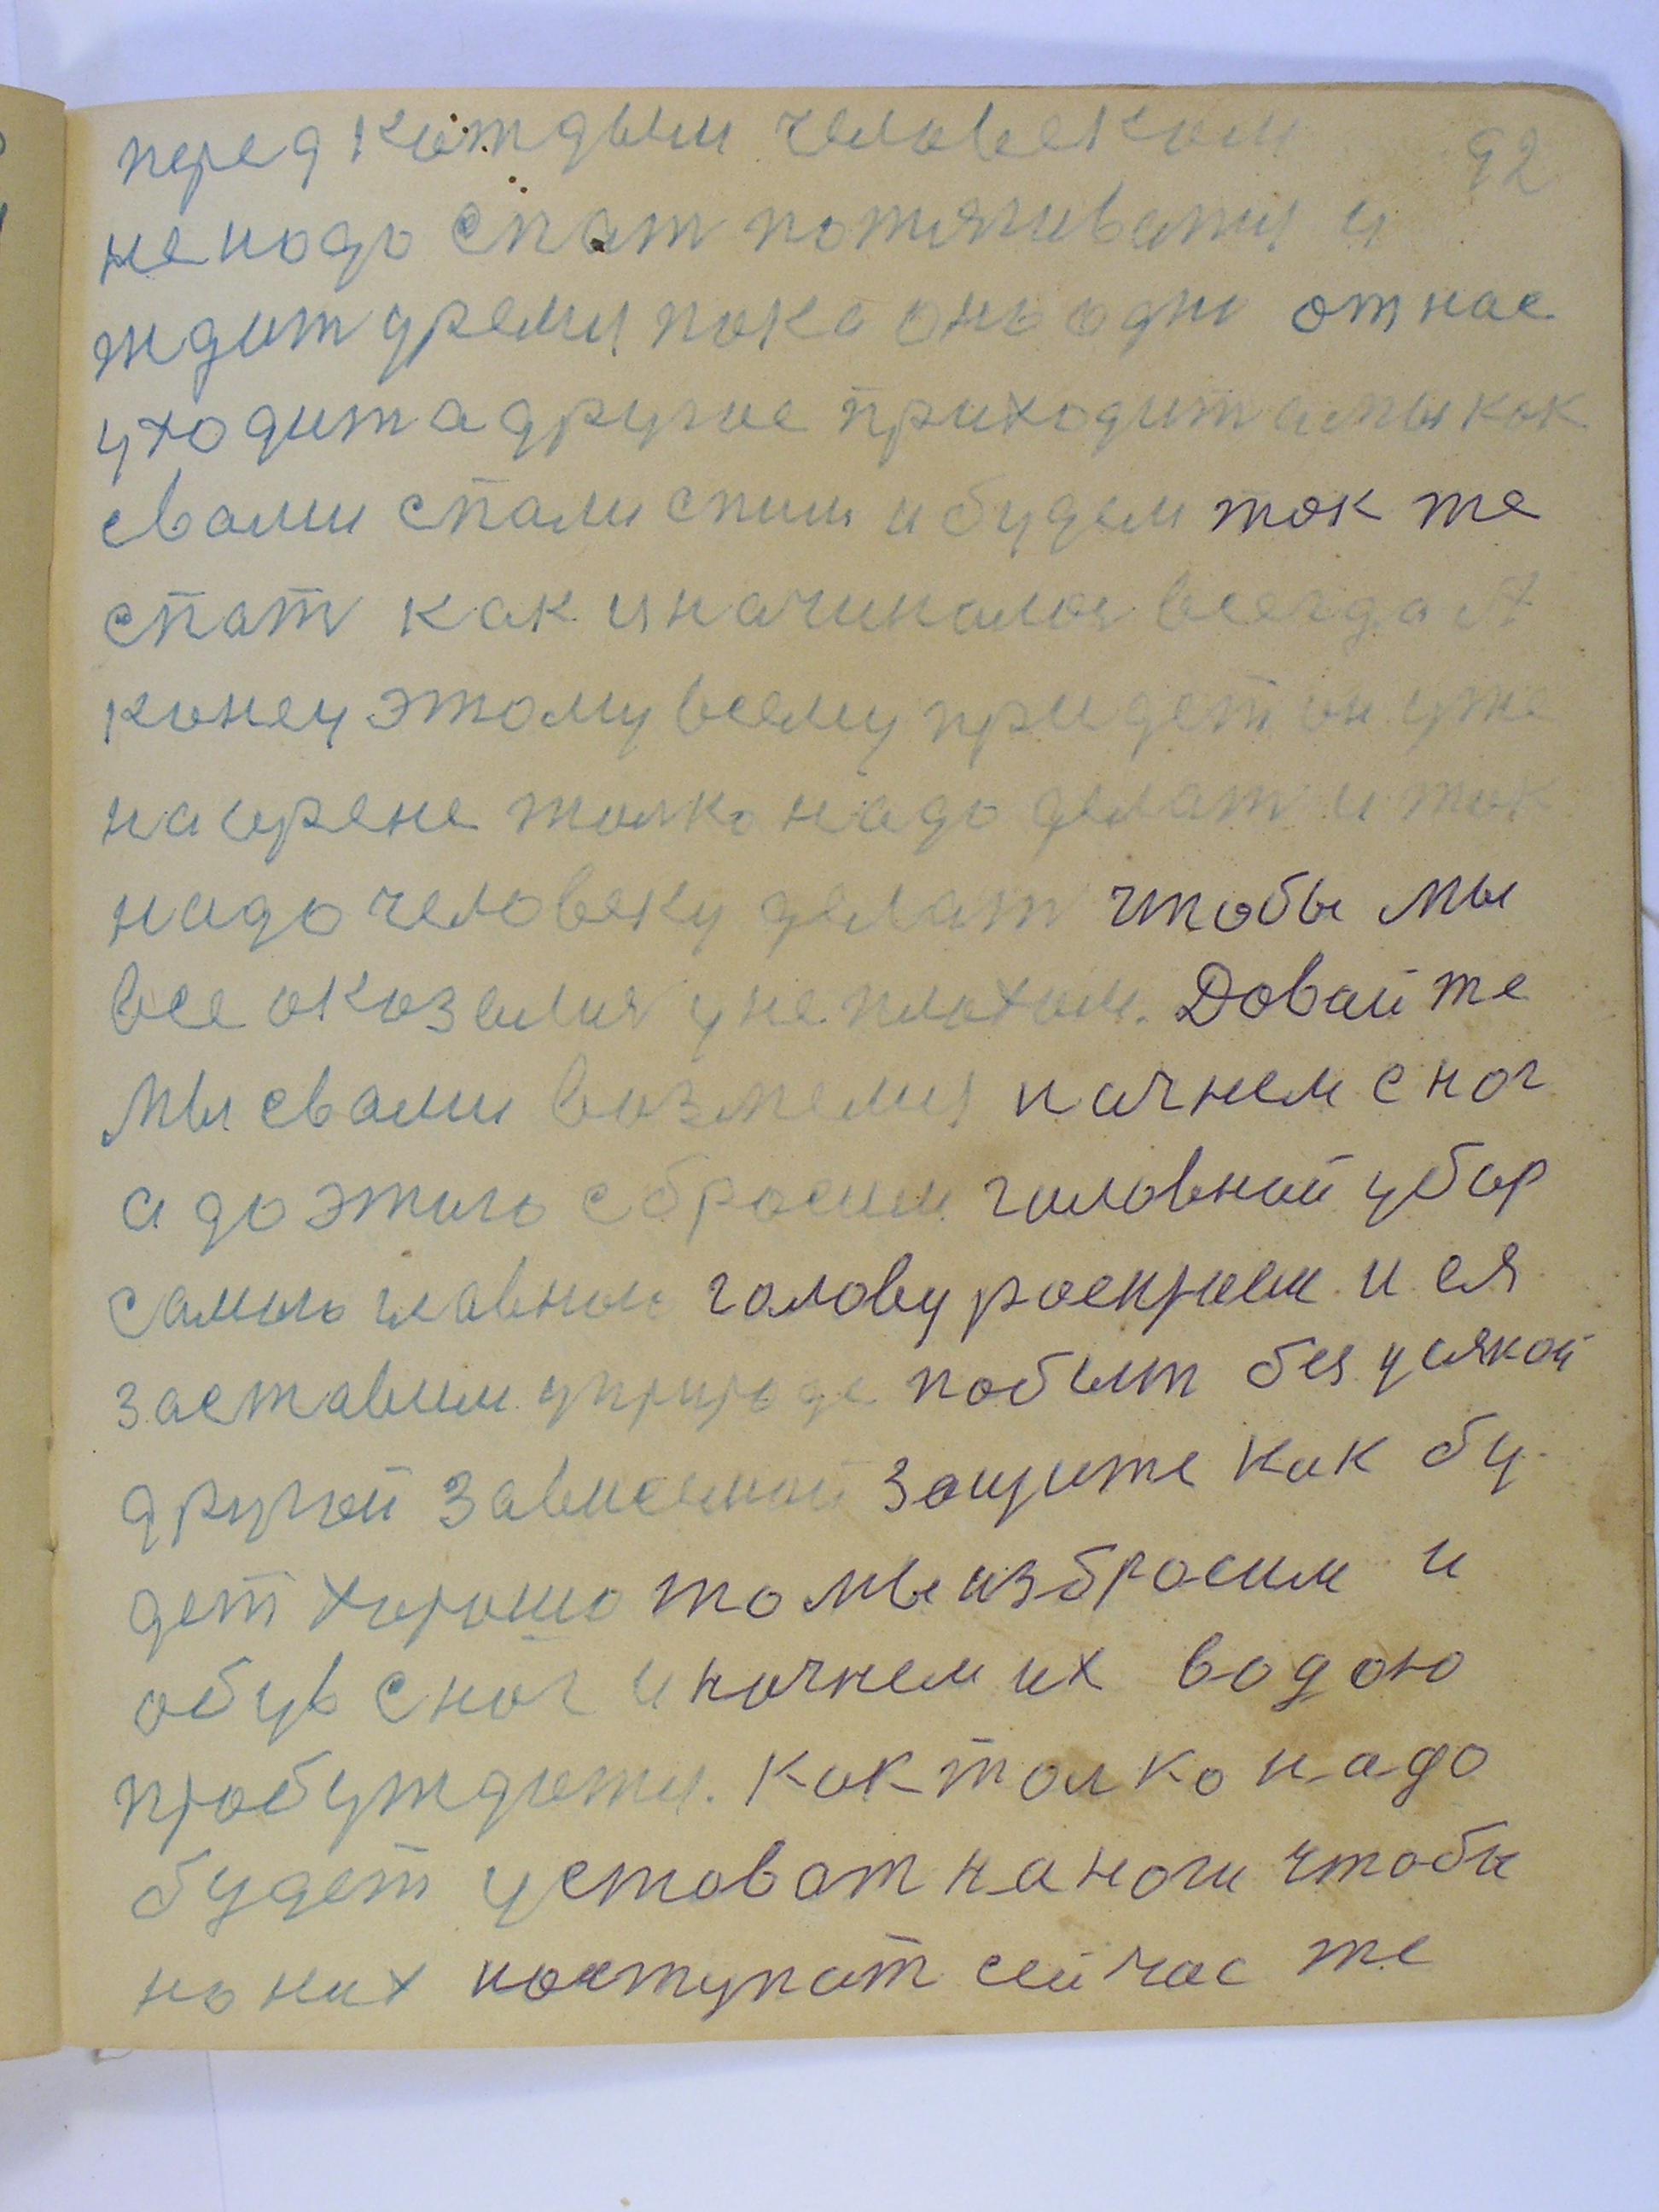 перед каждым человеком 92
не надо спат потягиватия и
ждит уремя пока оно одно от нас
уходит а другое приходит а мы как
свами спали спим и будем ток же
спат как и начиналоя всегда А
конец этому всему придет он уже
на црене толко надо делат и так
надо человеку делат чтобы мы
все оказалия у не плохом. Довайте
мы свами возмемия начнем с ног
а до этого сбросим головной убор
самою главною голову роскрыем и ея
заставим у природе побыт без усякой
другой зависемой защите как бу
дет хорошо то мы избросим и
обув с ног и начнем их водою
пробуждати. Как толко надо
будет устават на ноги чтобы
но них наступат сейчас же